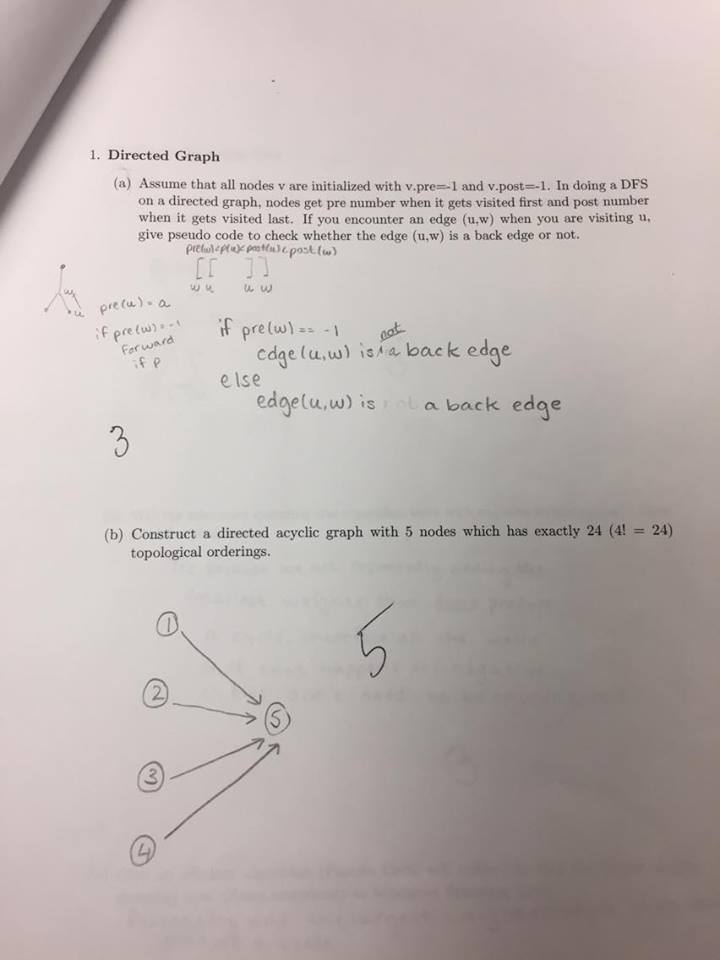 1. Directed Graph
(a) Assume that all nodes v are initialized with v.pre=-1 and v.post=-1. In doing a DFS
on a directed graph, nodes get pre number when it gets visited first and post number
when it gets visited last. If you encounter an edge (u,w) when you are visiting u,
give pseudo code to check whether the edge (u,w) is a back edge or not.
pre(w)<p(u)<post(u)<post(w)
[ [ ] ]
w u u w
w
u
pre(u) = a
if pre(w) = -1
forward
if p
if pre(w) == -1
edge(u,w) is not a back edge
else
edge(u,w) is a back edge
3
(b) Construct a directed acyclic graph with 5 nodes which has exactly 24 (4! = 24)
topological orderings.
1
5
2
5
3
4